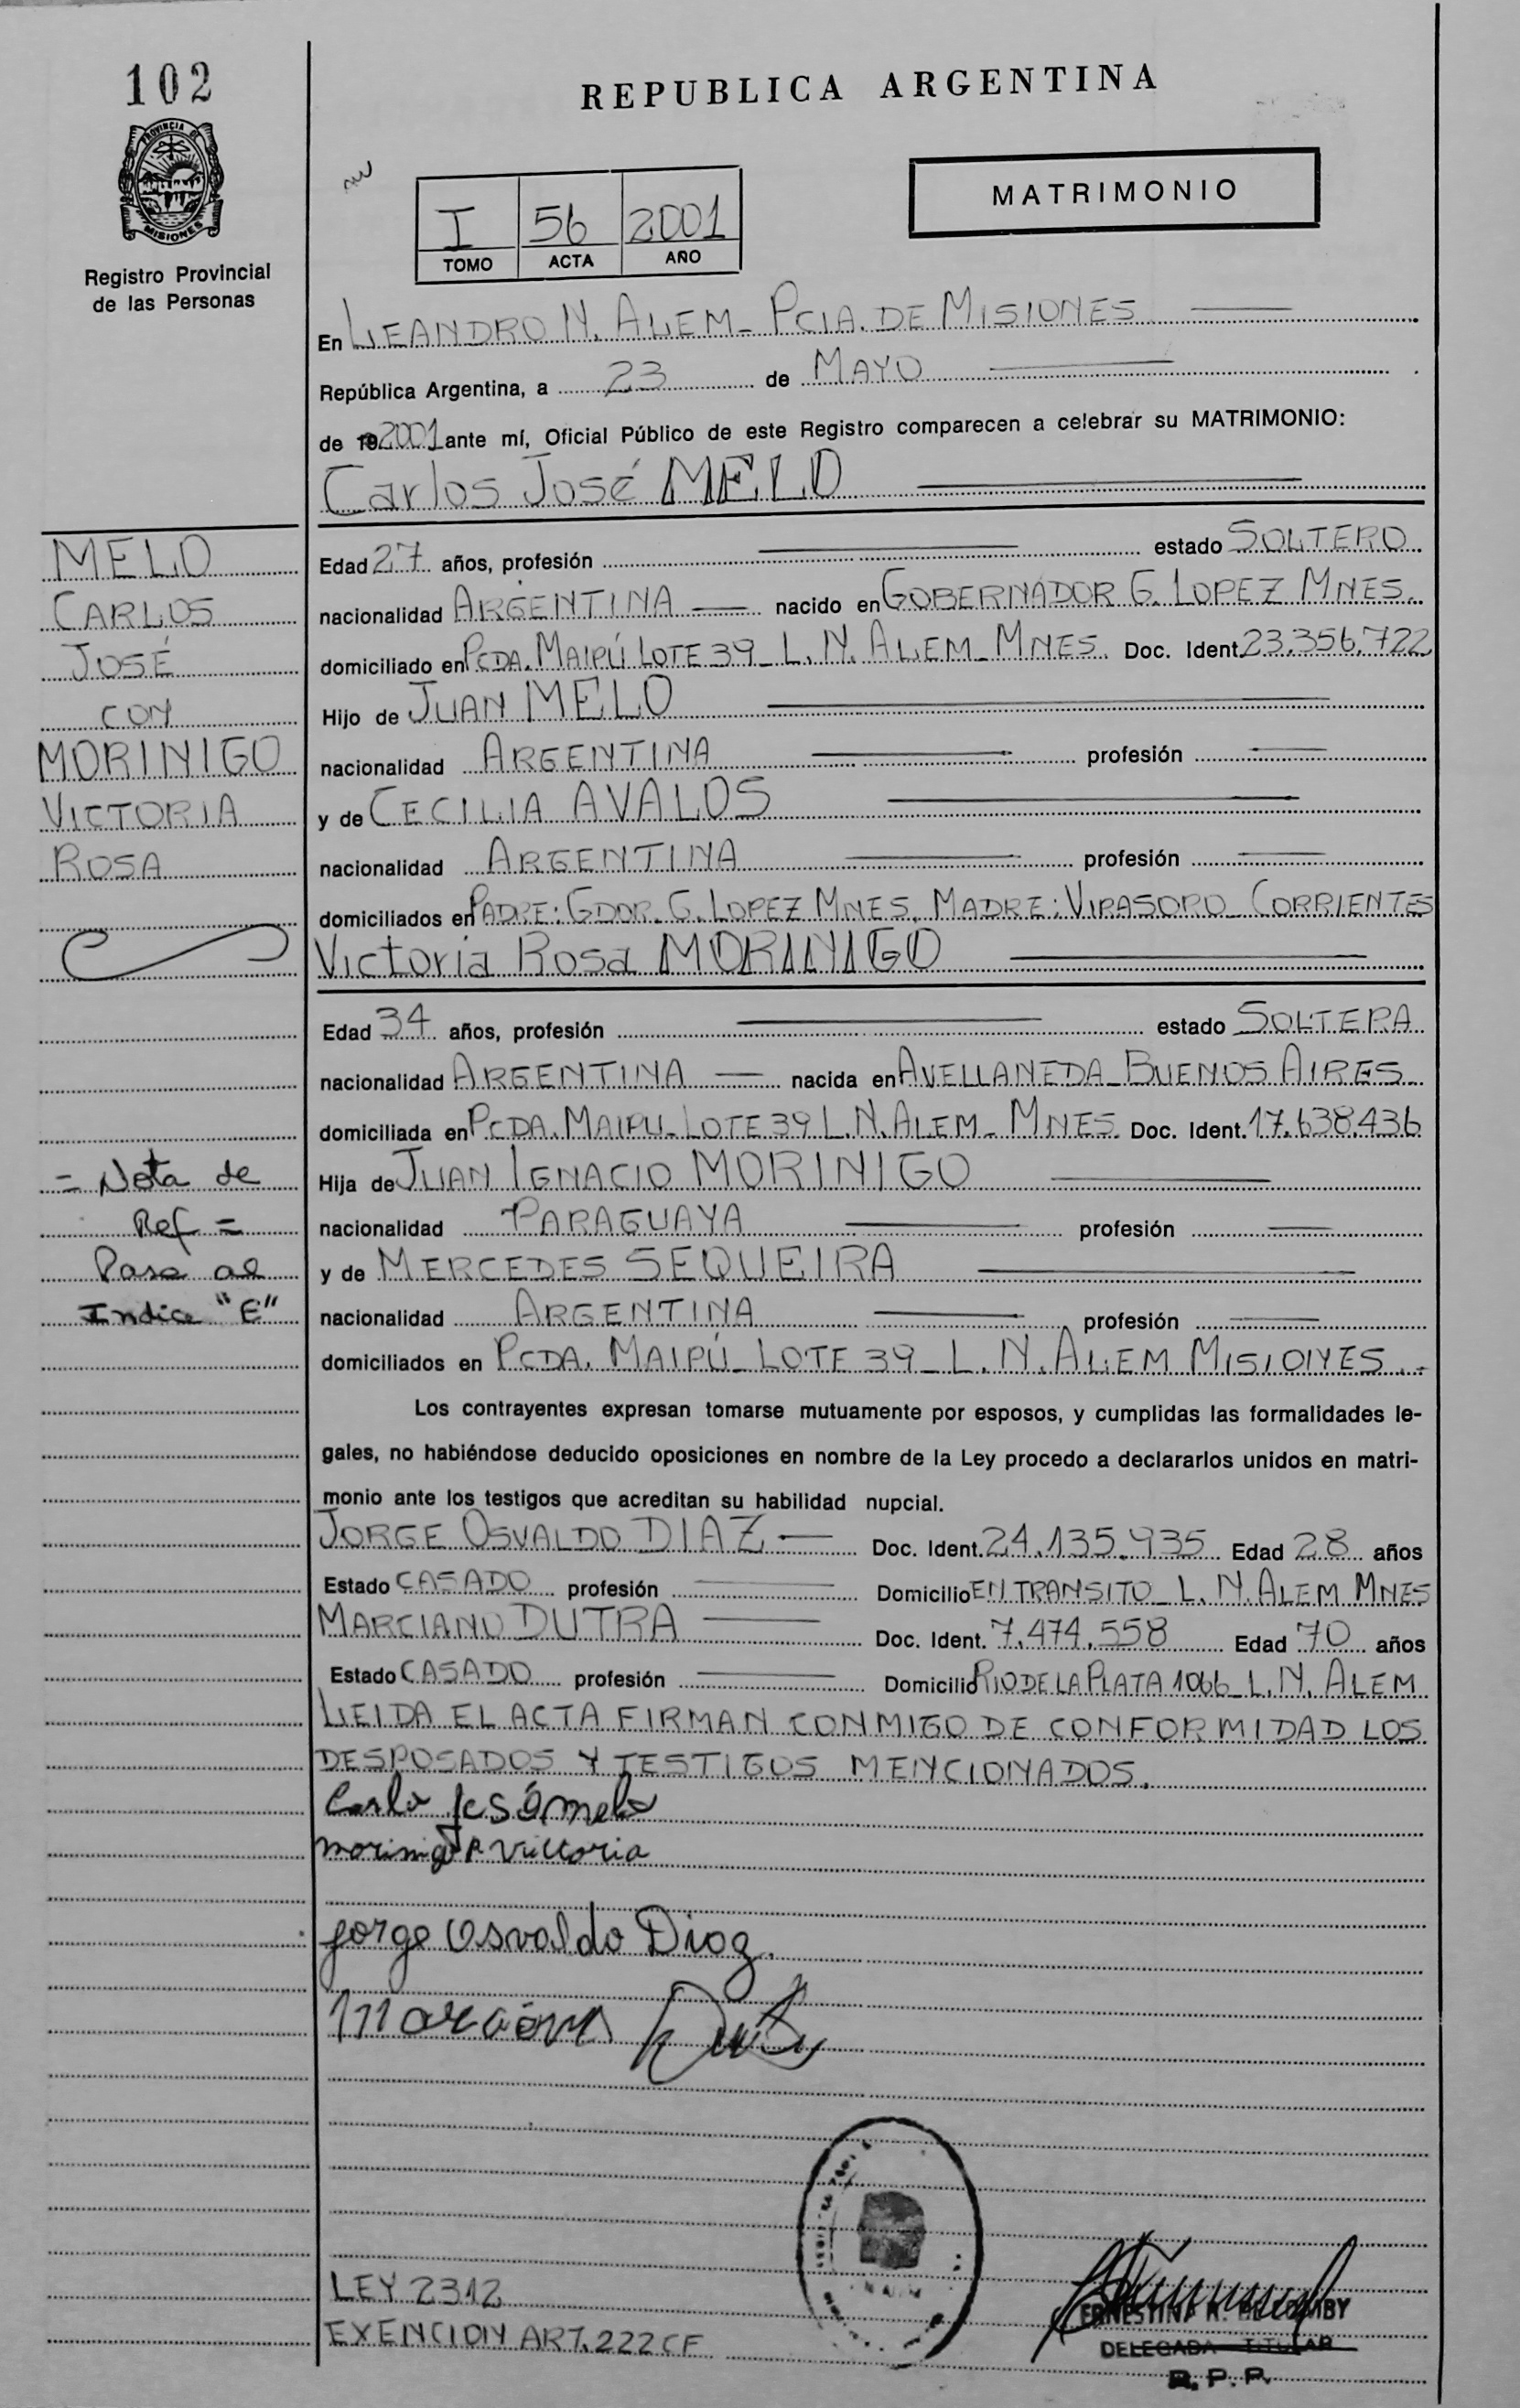 102
REPUBLICA ARGENTINA
PROVINCIA DE
MISIONES
Registro Provincial
de las Personas
MATRIMONIO
I 56 2001
TOMO ACTA AÑO
En LEANDRO N. ALEM - PCIA. DE MISIONES
República Argentina, a 23 de MAYO
de 2001 ante mí, Oficial Público de este Registro comparecen a celebrar su MATRIMONIO:
Carlos José MELO
MELO
CARLOS
JOSÉ
CON
MORINIGO
VICTORIA
ROSA
Edad 27 años, profesión estado SOLTERO
nacionalidad ARGENTINA nacido en GOBERNADOR G. LOPEZ MNES.
domiciliado en PCDA. MAIPÚ LOTE 39 - L. N. ALEM - MNES. Doc. Ident. 23.356.722
Hijo de JUAN MELO
nacionalidad ARGENTINA profesión
y de CECILIA AVALOS
nacionalidad ARGENTINA profesión
domiciliados en PADRE: GDOR. G. LOPEZ MNES. MADRE: VIRASORO - CORRIENTES
Victoria Rosa MORINIGO
Edad 34 años, profesión estado SOLTERA
nacionalidad ARGENTINA nacida en AVELLANEDA - BUENOS AIRES
domiciliada en PCDA. MAIPU - LOTE 39 L.N. ALEM - MNES. Doc. Ident. 17.638.436
Hija de JUAN IGNACIO MORINIGO
nacionalidad PARAGUAYA profesión
y de MERCEDES SEQUEIRA
nacionalidad ARGENTINA profesión
domiciliados en PCDA. MAIPÚ - LOTE 39 - L. N. ALEM MISIONES.-
= Nota de
Ref =
Pasa al
Indice "E"
Los contrayentes expresan tomarse mutuamente por esposos, y cumplidas las formalidades le-
gales, no habiéndose deducido oposiciones en nombre de la Ley procedo a declararlos unidos en matri-
monio ante los testigos que acreditan su habilidad nupcial.
JORGE OSVALDO DIAZ Doc. Ident. 24.135.935 Edad 28 años
Estado CASADO profesión Domicilio EN TRANSITO - L. N. ALEM MNES
MARCIANO DUTRA Doc. Ident. 7.474.558 Edad 70 años
Estado CASADO profesión Domicilio RIO DE LA PLATA 1066 - L. N. ALEM
LEIDA EL ACTA FIRMAN CONMIGO DE CONFORMIDAD LOS
DESPOSADOS Y TESTIGOS MENCIONADOS.
Carlo José melo
morinigo R Victoria
Jorge Osvaldo Diaz.
LEY 2312
EXENCION ART. 222 CF
ERNESTINA
DELEGADA TITULAR
R. P. P.